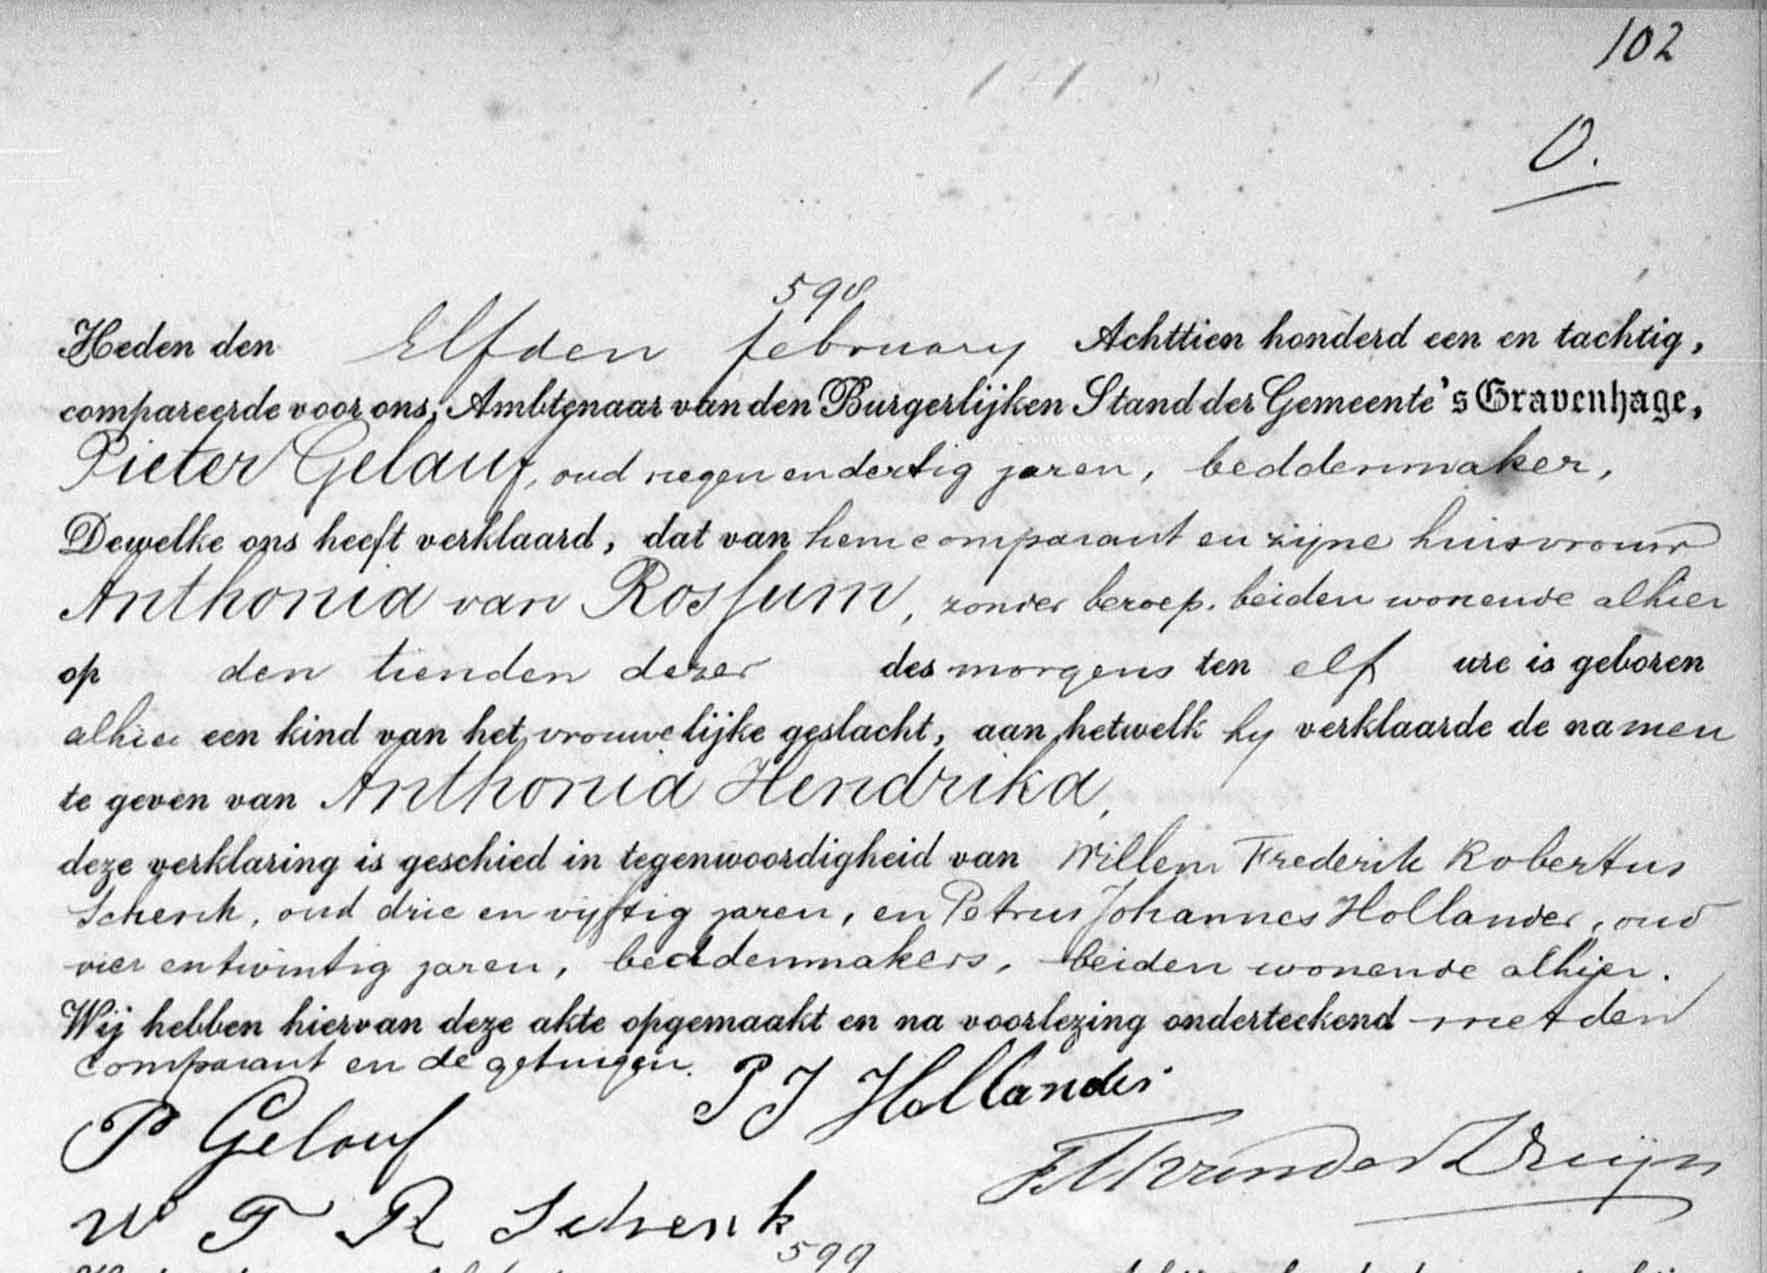 102
O.
598
Heden den Elfden february Achttien honderd een en tachtig,
compareerde voor ons, Ambtenaar van den Burgerlijken Stand der Gemeente 's Gravenhage,
Pieter Gelauf, oud negen en dertig jaren, beddenmaker,
Dewelke ons heeft verklaard, dat van hem comparant en zijne huisvrouw
Anthonia van Rossum, zonder beroep. beiden wonende alhier
op den tienden dezer des morgens ten elf ure is geboren
alhier een kind van het vrouwelijke geslacht, aan hetwelk hy verklaarde de namen
te geven van Anthonia Hendrika,
deze verklaring is geschied in tegenwoordigheid van Willem Frederik Robertus
Schenk, oud drie en vijftig jaren, en Petrus Johannes Hollander, oud
vier en twintig jaren, beddenmakers, beiden wonende alhier.
Wij hebben hiervan deze akte opgemaakt en na voorlezing onderteekend met den
comparant en de getuigen.
P J Hollander
P Gelauf
W F R Schenk
599